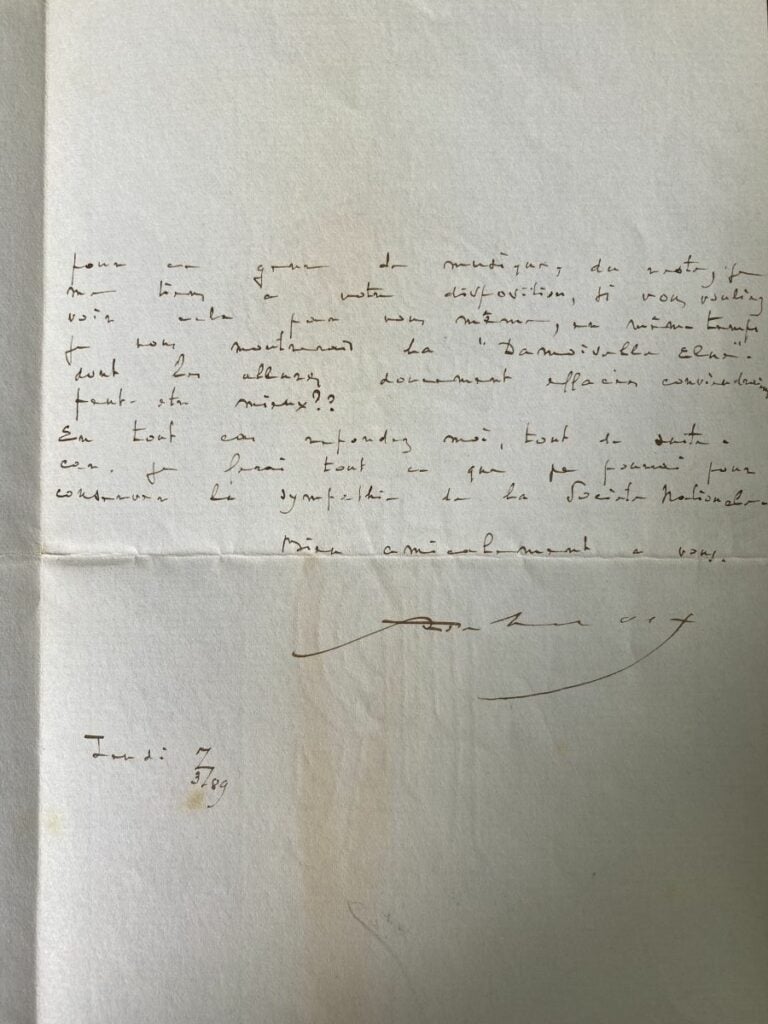 pour ce genre de musique, du reste, je
me tiens a votre disposition, si vous vouliez
voir cela par vous même, en même temps
je vous montrerais la "Damoiselle Elue".
dont les allures doucement effacées conviendraient
peut-etre mieux??
En tout cas repondez moi, tout de suite.
car. je ferai tout ce que je pourrai pour
conserver la sympathie de la Societe Nationale.
Bien amicalement a vous.
Jeudi 7
3/89